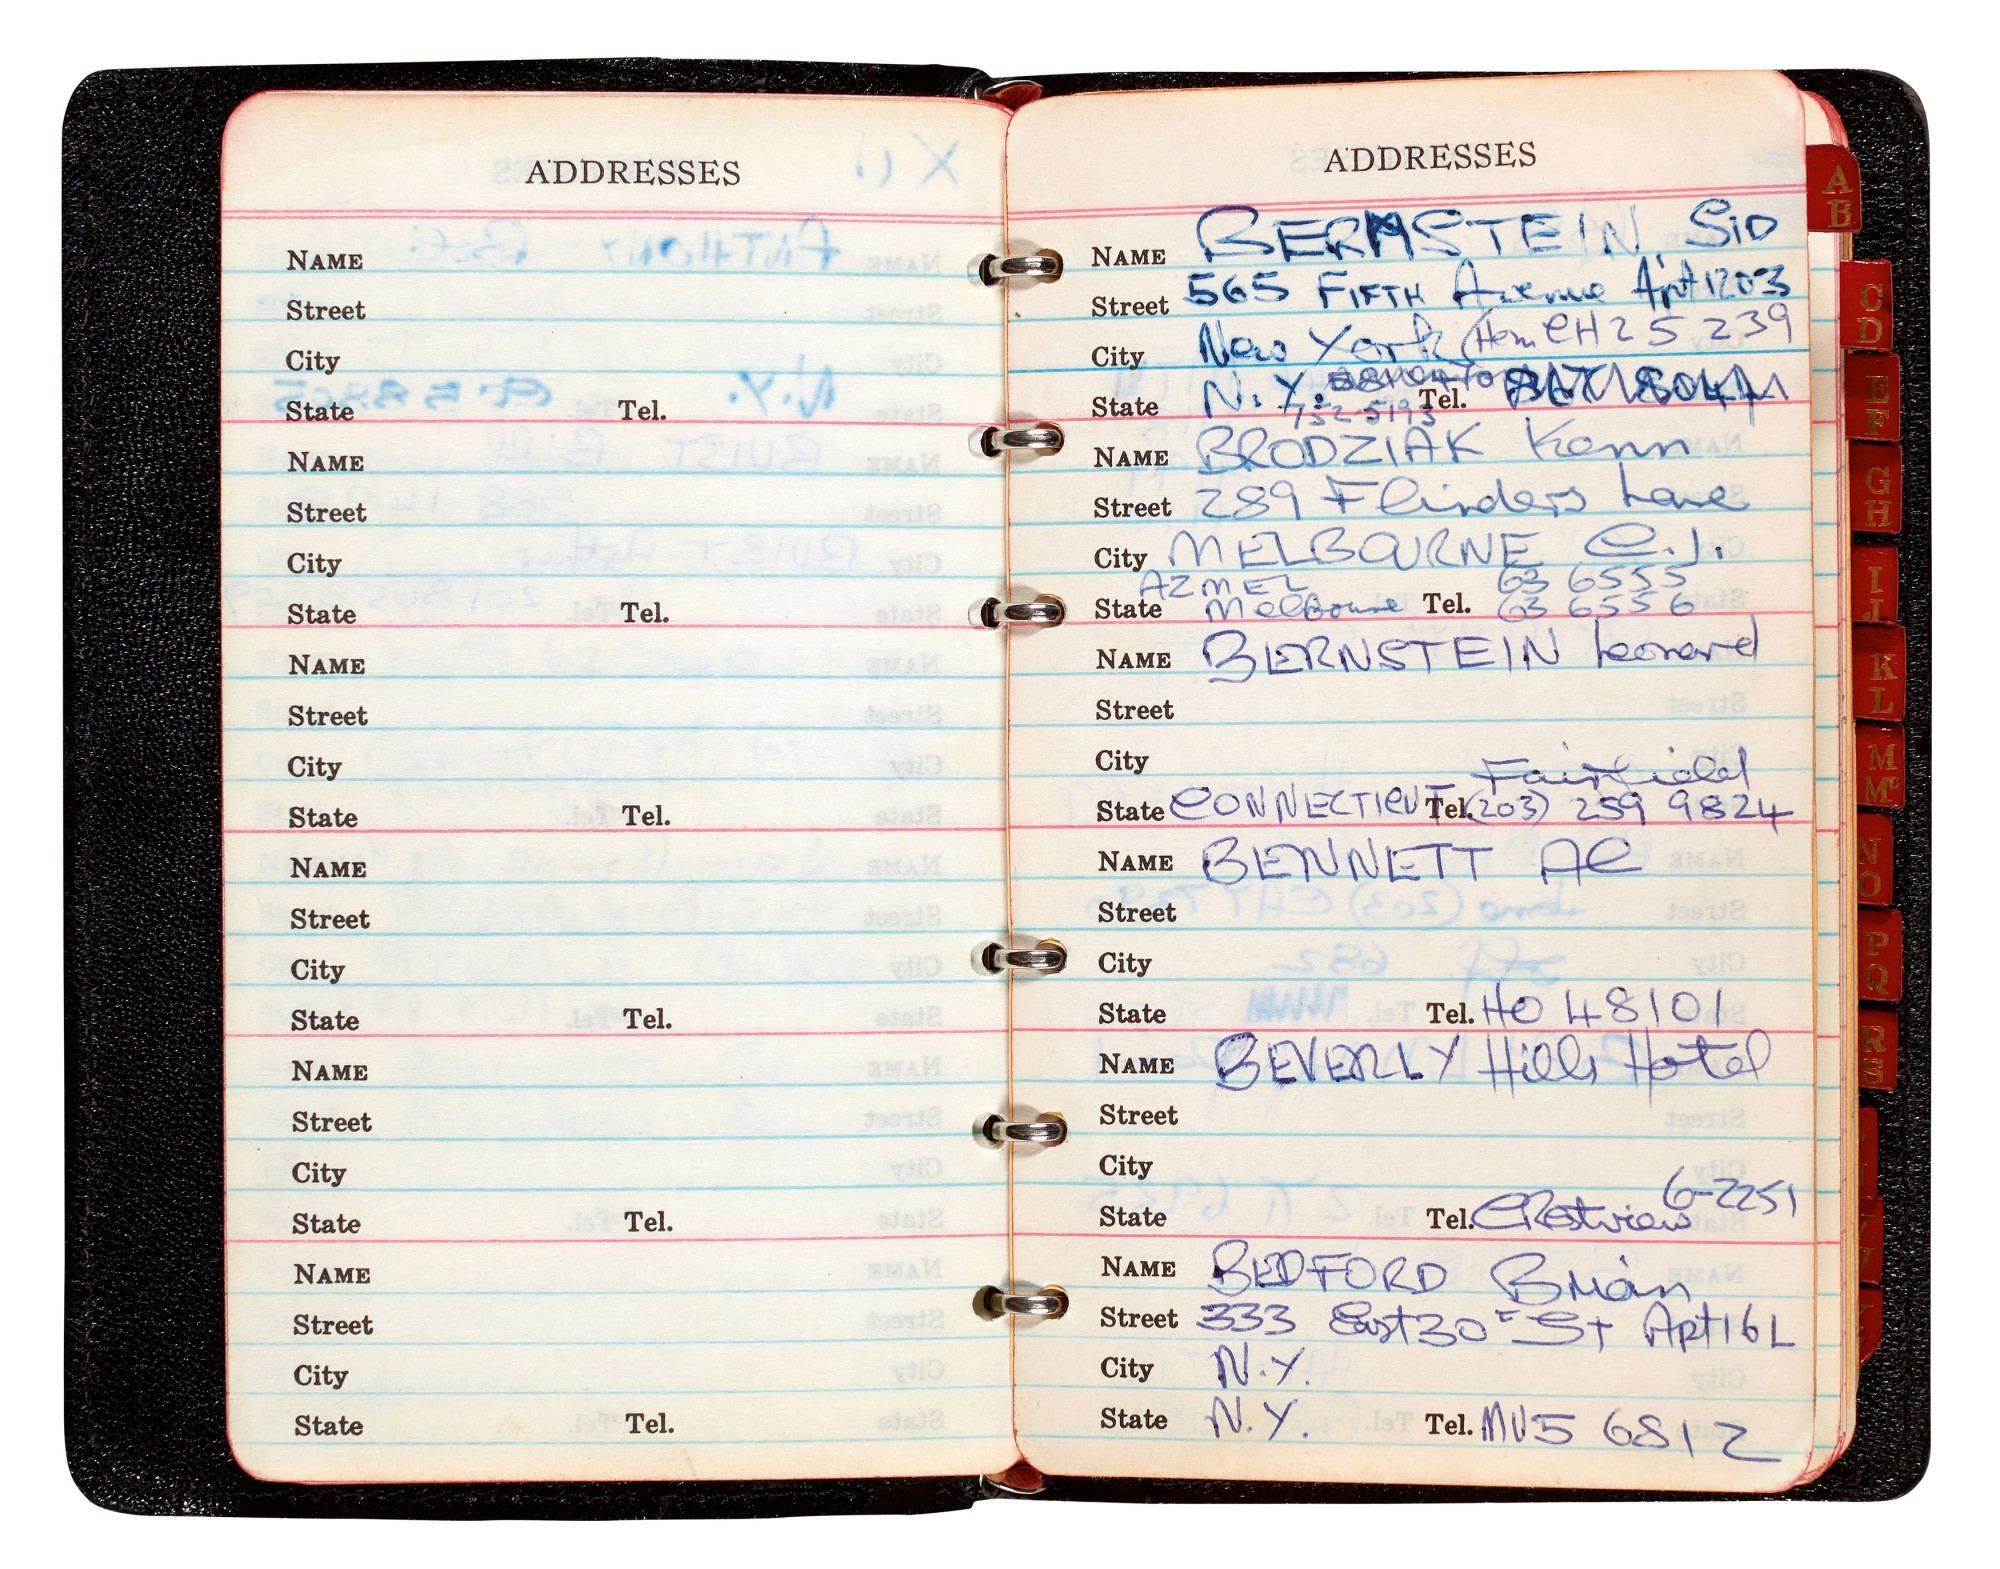 ADDRESSES
NAME
Street
City
State Tel.
NAME
Street
City
State Tel.
NAME
Street
City
State Tel.
NAME
Street
City
State Tel.
NAME
Street
City
State Tel.
NAME
Street
City
State Tel.
ADDRESSES
NAME BERNSTEIN SID
Street 565 FIFTH Avenue Apt 1203
City New York (Hom CH 25 239
State N.Y. Tel.
732-5193
NAME BRODZIAK Kenn
Street 289 Flinders Lane
City MELBOURNE C.1.
AZMEL 63 6555
State Melbourne Tel. 63 6556
NAME BERNSTEIN Leonard
Street
City Fairfield
State CONNECTICUT Tel. (203) 259 9824
NAME BENNETT Al
Street
City
State Tel. HO 48101
NAME BEVERLY Hills Hotel
Street
City
State Tel. CRestview 6-2251
NAME BEDFORD Brian
Street 333 East 30 St Apt 16L
City N.Y.
State N.Y. Tel. MU5 6812
A
B
C
D
E
F
G
H
I
J
K
L
M
Mc
N
O
P
Q
R
S